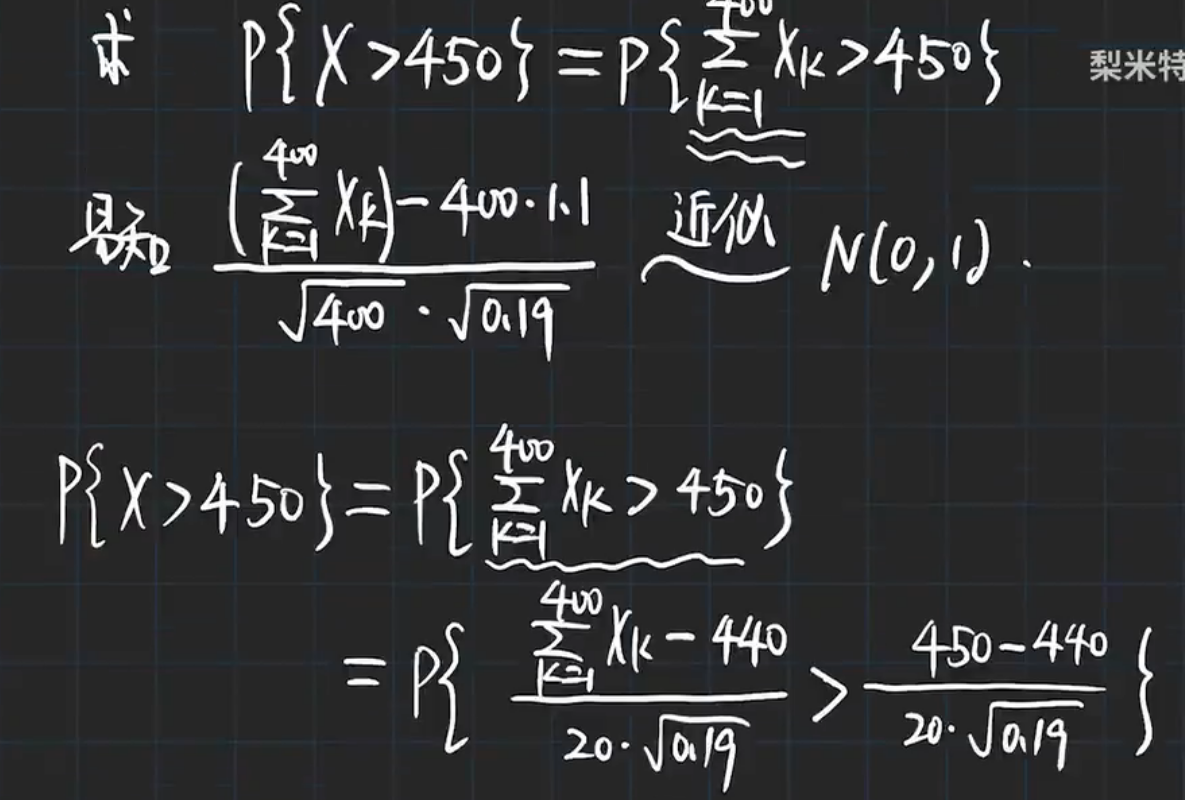 求 P{X>450}=P{∑_{k=1}^{400} X_k>450}
梨米特
易知 ((∑_{k=1}^{400} X_k)-400·1.1)/(√400·√0.19) 近似~ N(0,1).
P{X>450}=P{∑_{k=1}^{400} X_k>450}
=P{(∑_{k=1}^{400} X_k-440)/(20·√0.19)>(450-440)/(20·√0.19)}